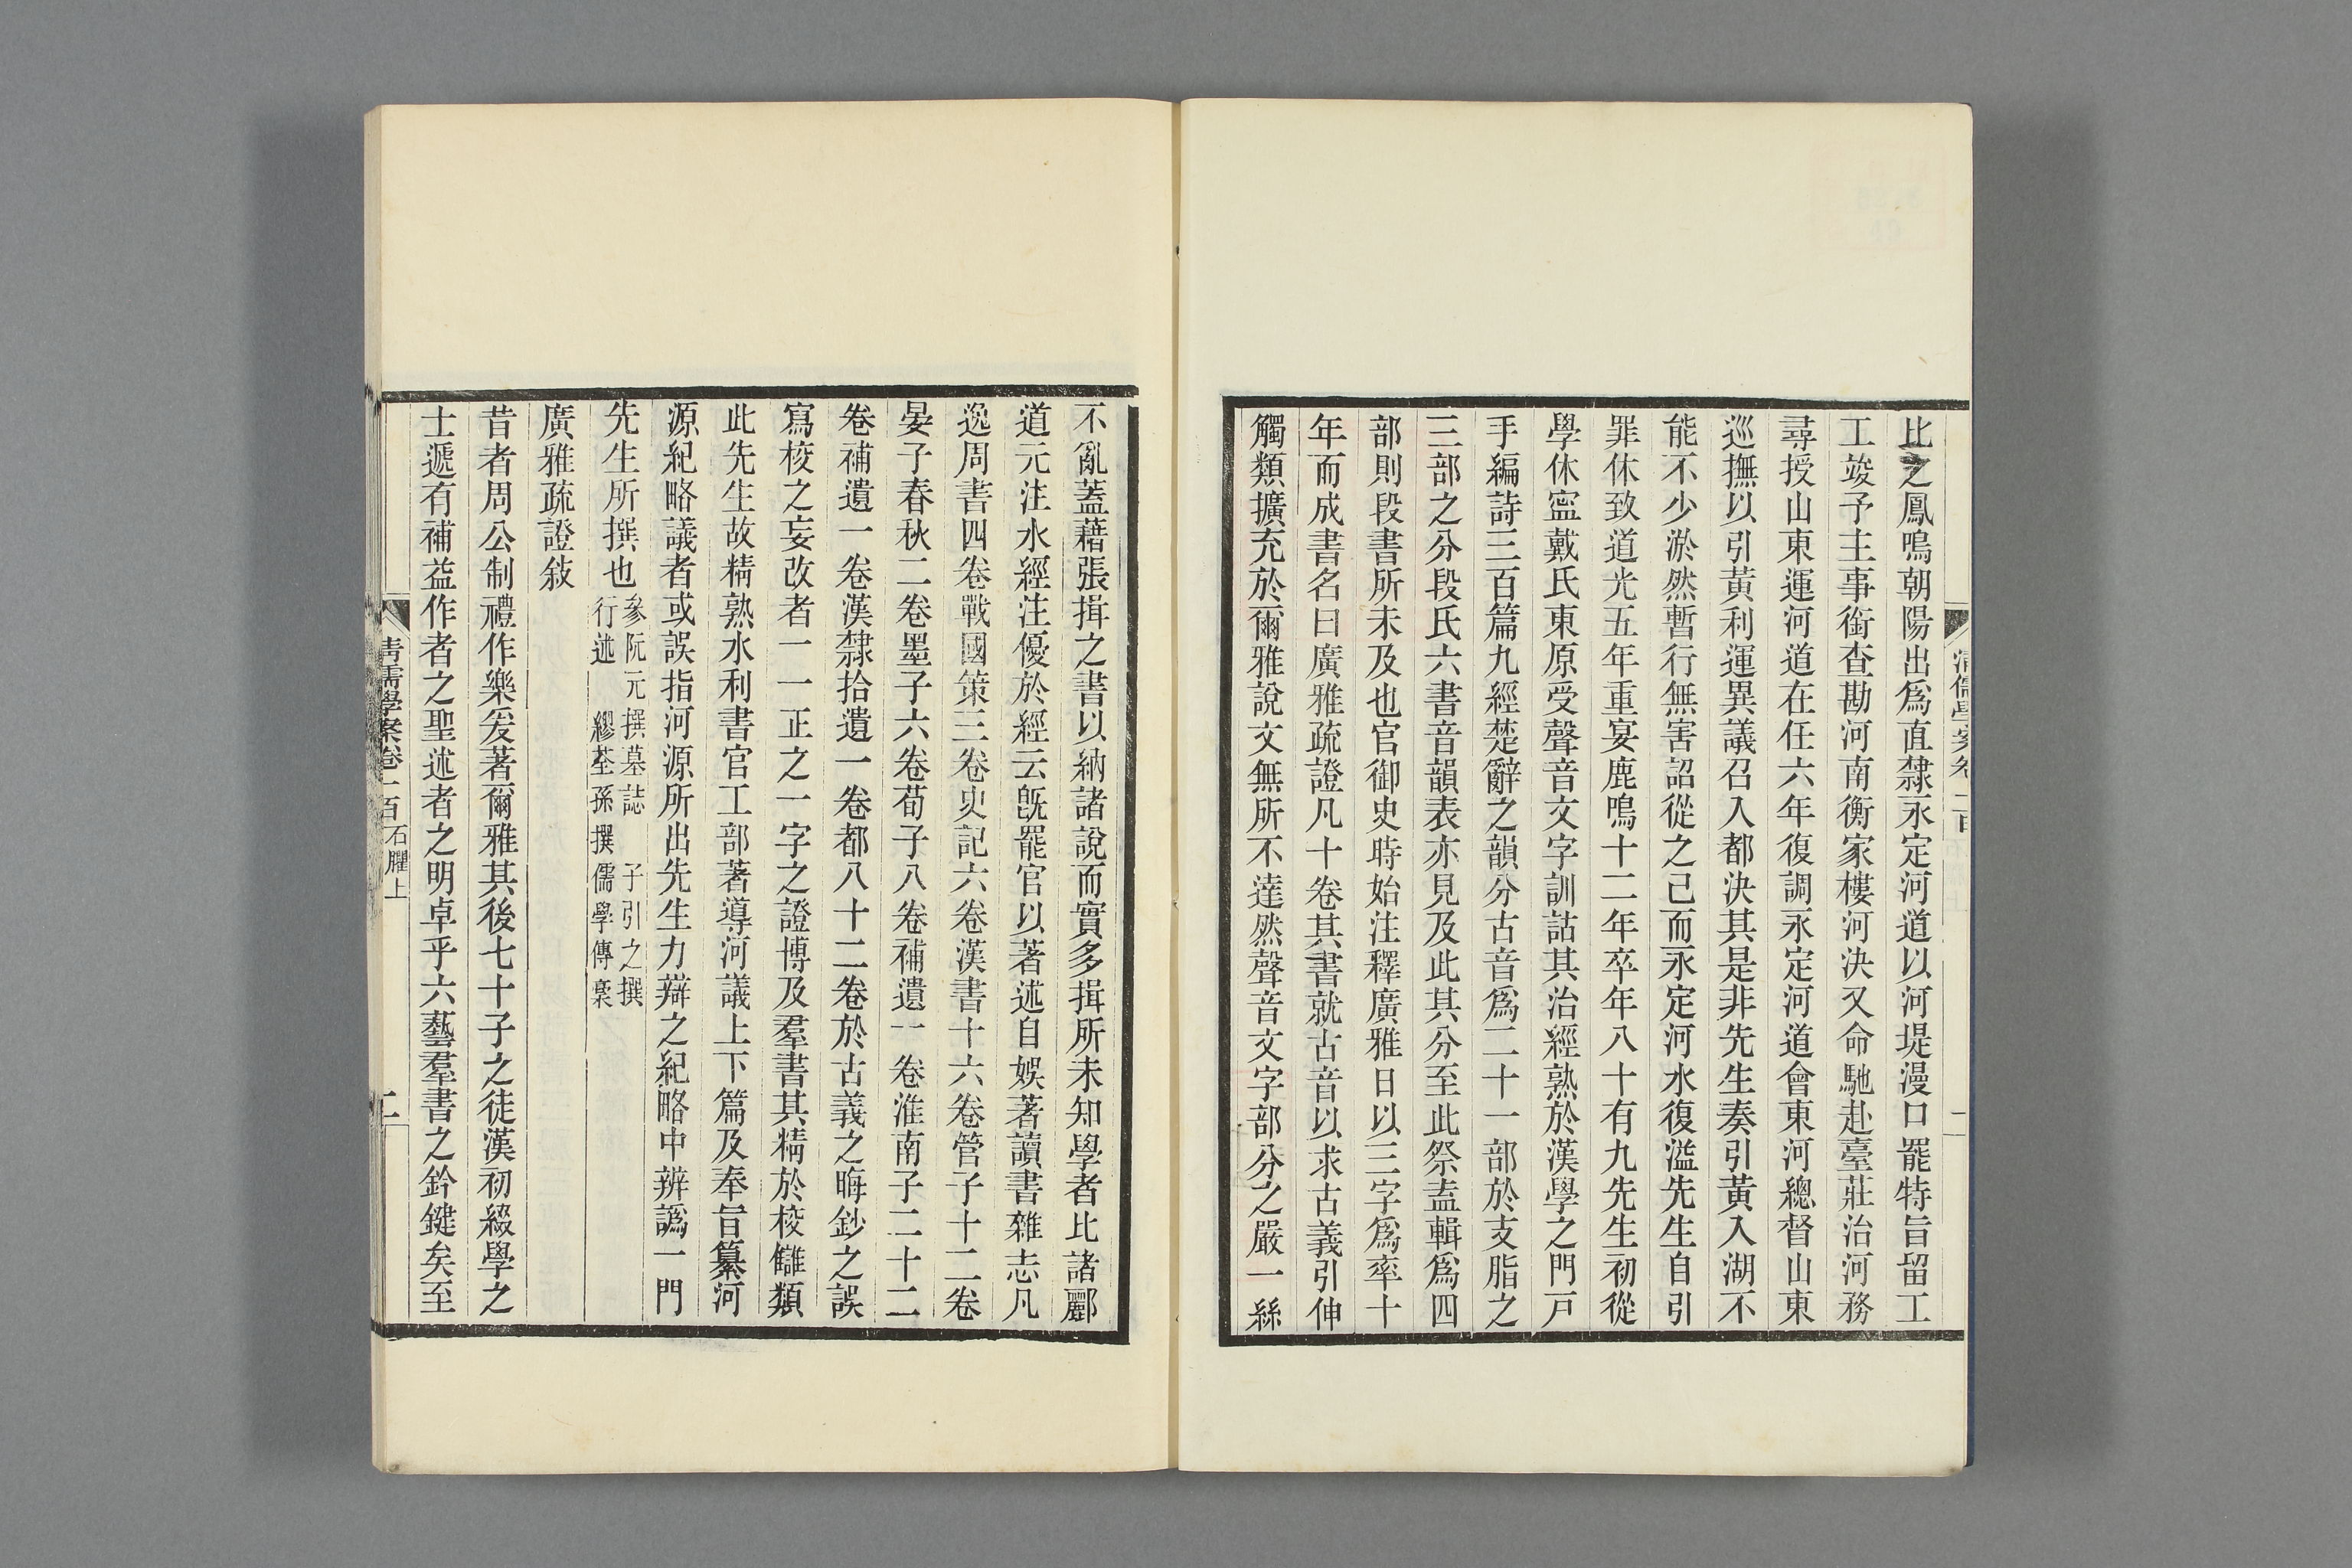 比之鳳鳴朝陽出爲直隸永定河道以河堤漫口罷特旨留工
工竣予主事銜查勘河南衡家樓河決又命馳赴臺莊治河務
尋授山東運河道在任六年復調永定河道會東河總督山東
巡撫以引黃利運異議召入都決其是非先生奏引黃入湖不
能不少淤然暫行無害詔從之已而永定河水復溢先生自引
罪休致道光五年重宴鹿鳴十二年卒年八十有九先生初從
學休寧戴氏東原受聲音文字訓詁其治經熟於漢學之門戸
手編詩三百篇九經楚辭之韻分古音爲二十一部於支脂之
三部之分段氏六書音韻表亦見及此其分至此祭盍輯爲四
部則段書所未及也官御史時始注釋廣雅日以三字爲率十
年而成書名曰廣雅疏證凡十卷其書就古音以求古義引伸
觸類擴充於爾雅說文無所不達然聲音文字部分之嚴一絲
不亂蓋藉張揖之書以納諸說而實多揖所未知學者比諸酈
道元注水經注優於經云既罷官以著述自娛著讀書雜志凡
逸周書四卷戰國策三卷史記六卷漢書十六卷管子十二卷
晏子春秋二卷墨子六卷荀子八卷補遺一卷淮南子二十二
卷補遺一卷漢隸拾遺一卷都八十二卷於古義之晦鈔之誤
寫校之妄改者一一正之一字之證博及羣書其精於校讎類
此先生故精熟水利書官工部著導河議上下篇及奉旨纂河
源紀略議者或誤指河源所出先生力辯之紀略中辨譌一門
先生所撰也參阮元撰墓誌 子引之撰
行述 繆荃孫撰儒學傳稾
廣雅疏證敍
昔者周公制禮作樂爰著爾雅其後七十子之徒漢初綴學之
士遞有補益作者之聖述者之明卓乎六藝羣書之鈐鍵矣至
清儒學案卷一百 石臞上 二